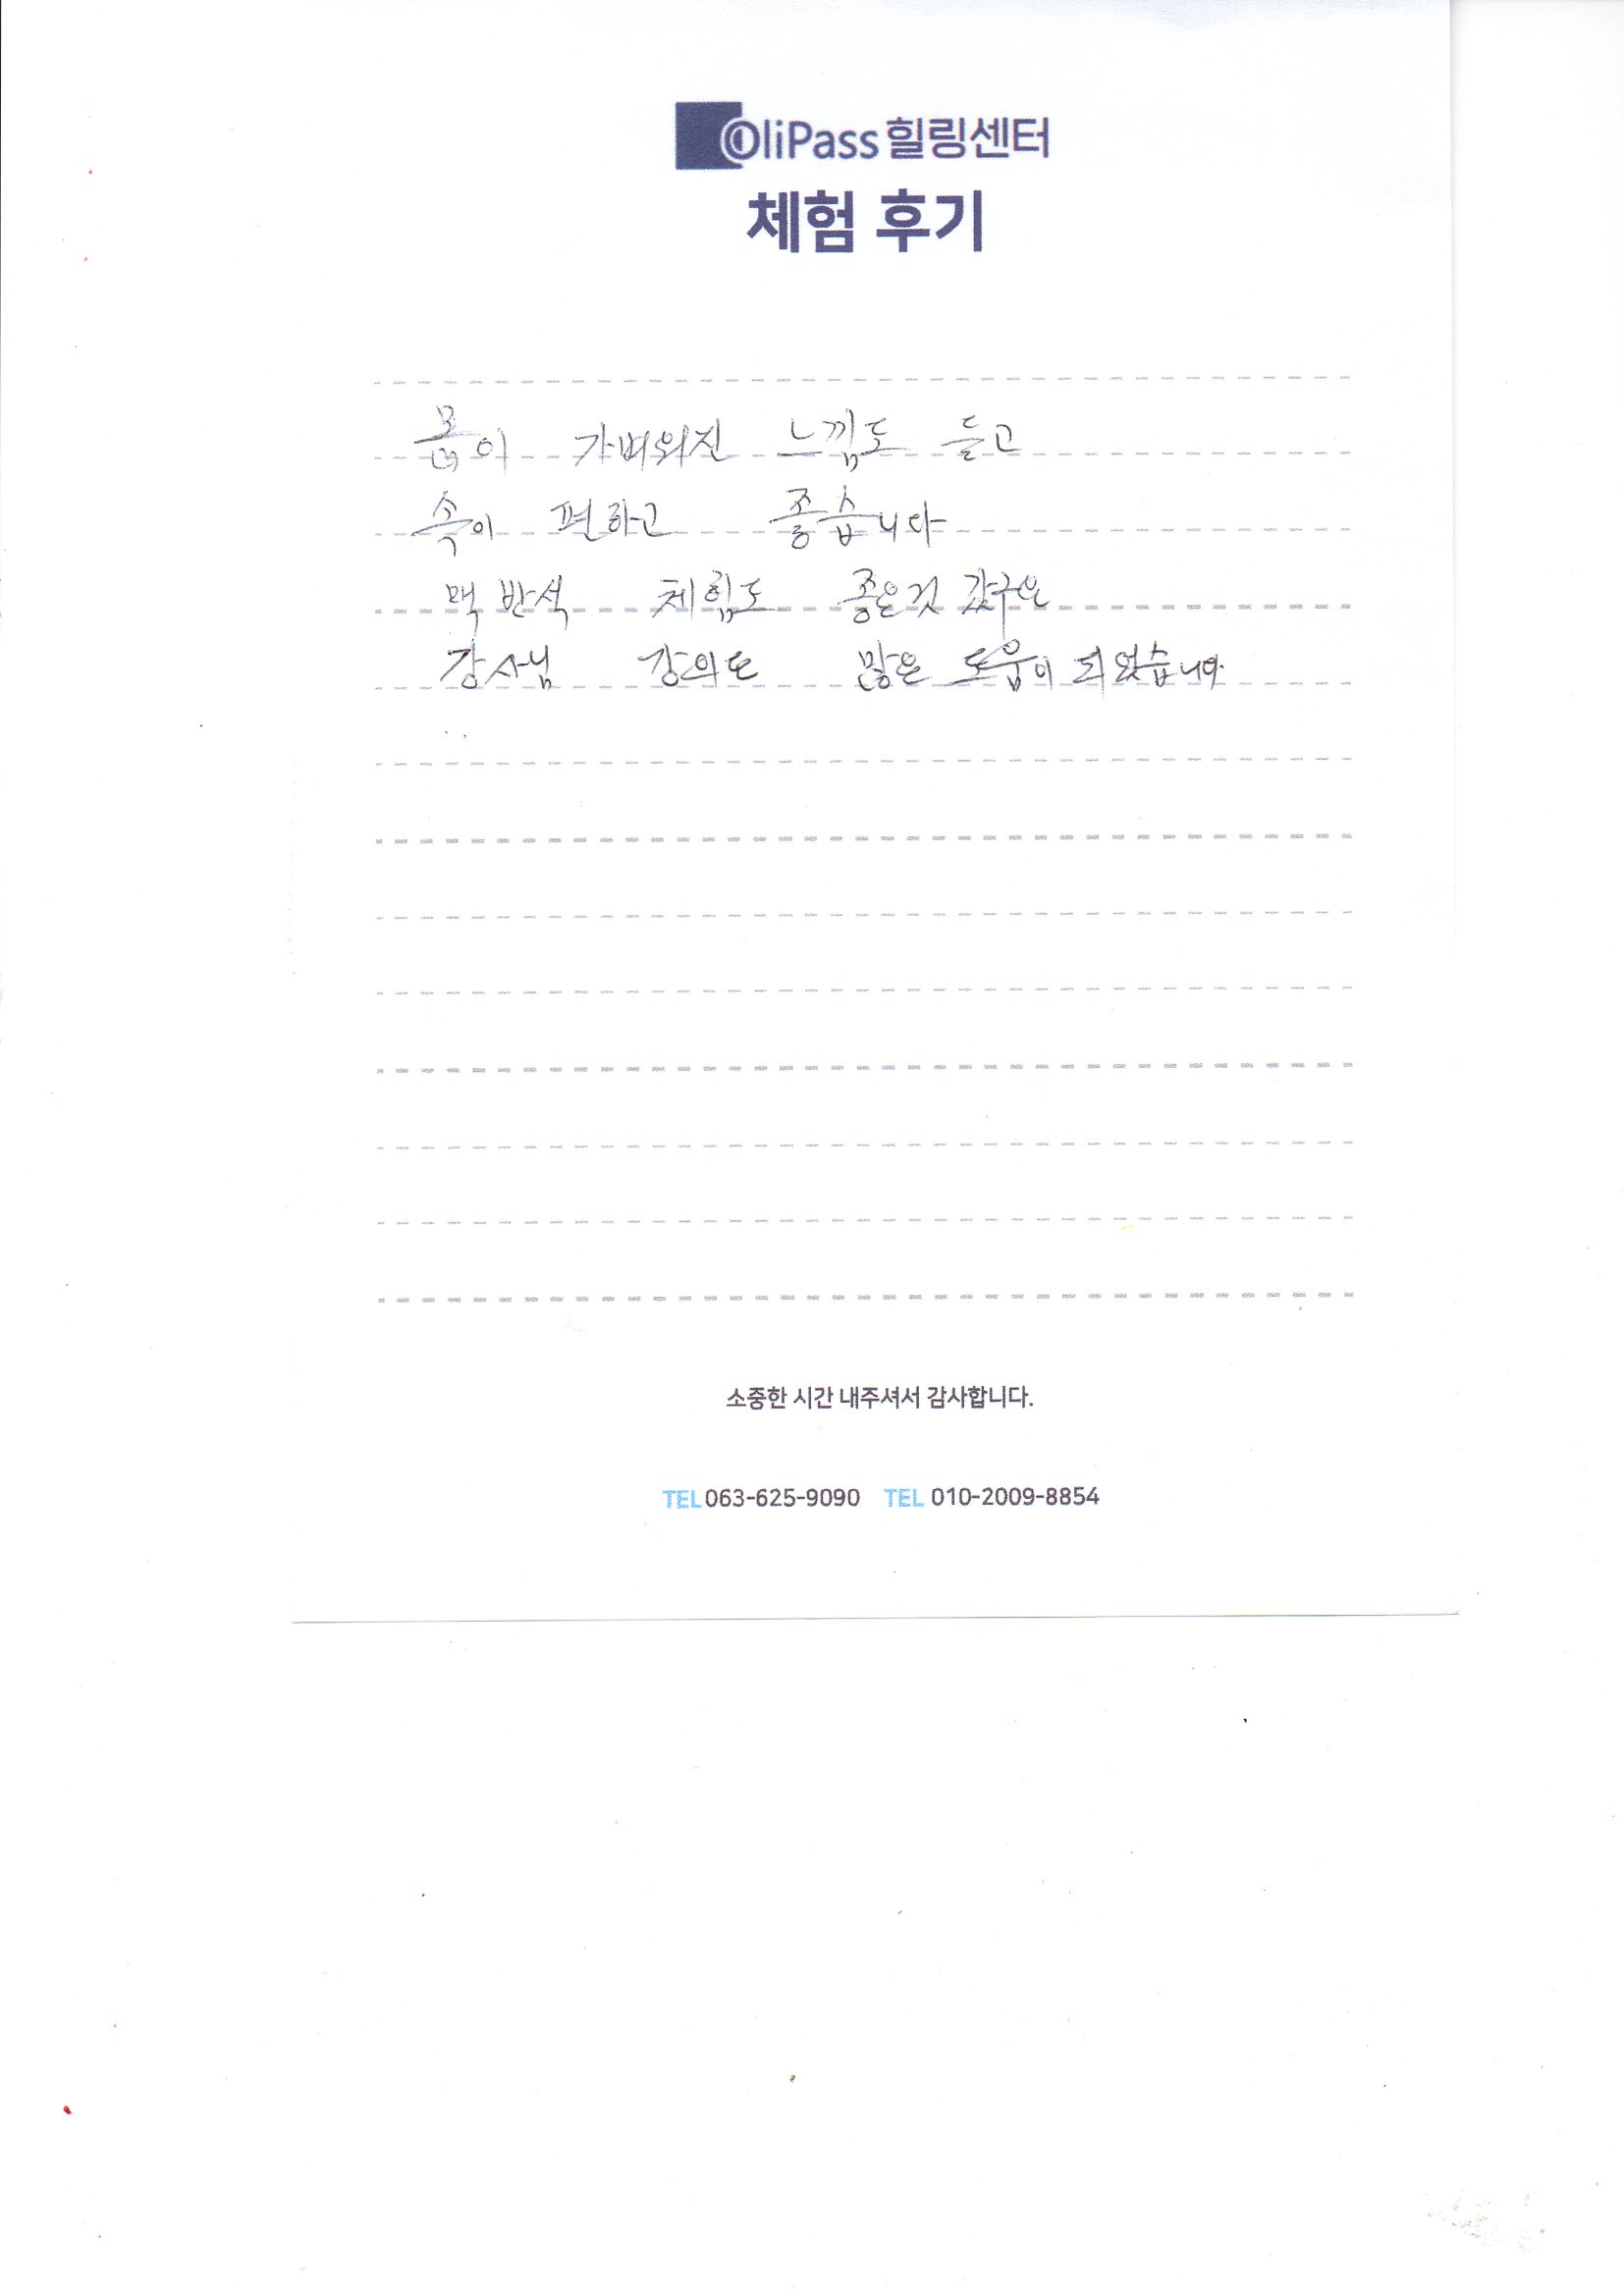 OliPass 힐링센터
체험 후기
몸이 가벼워진 느낌도 들고
속이 편하고 좋습니다
맥반석 체험도 좋은것 같구요
강사님 강의도 많은 도움이 되었습니다.
소중한 시간 내주셔서 감사합니다.
TEL 063-625-9090 TEL 010-2009-8854